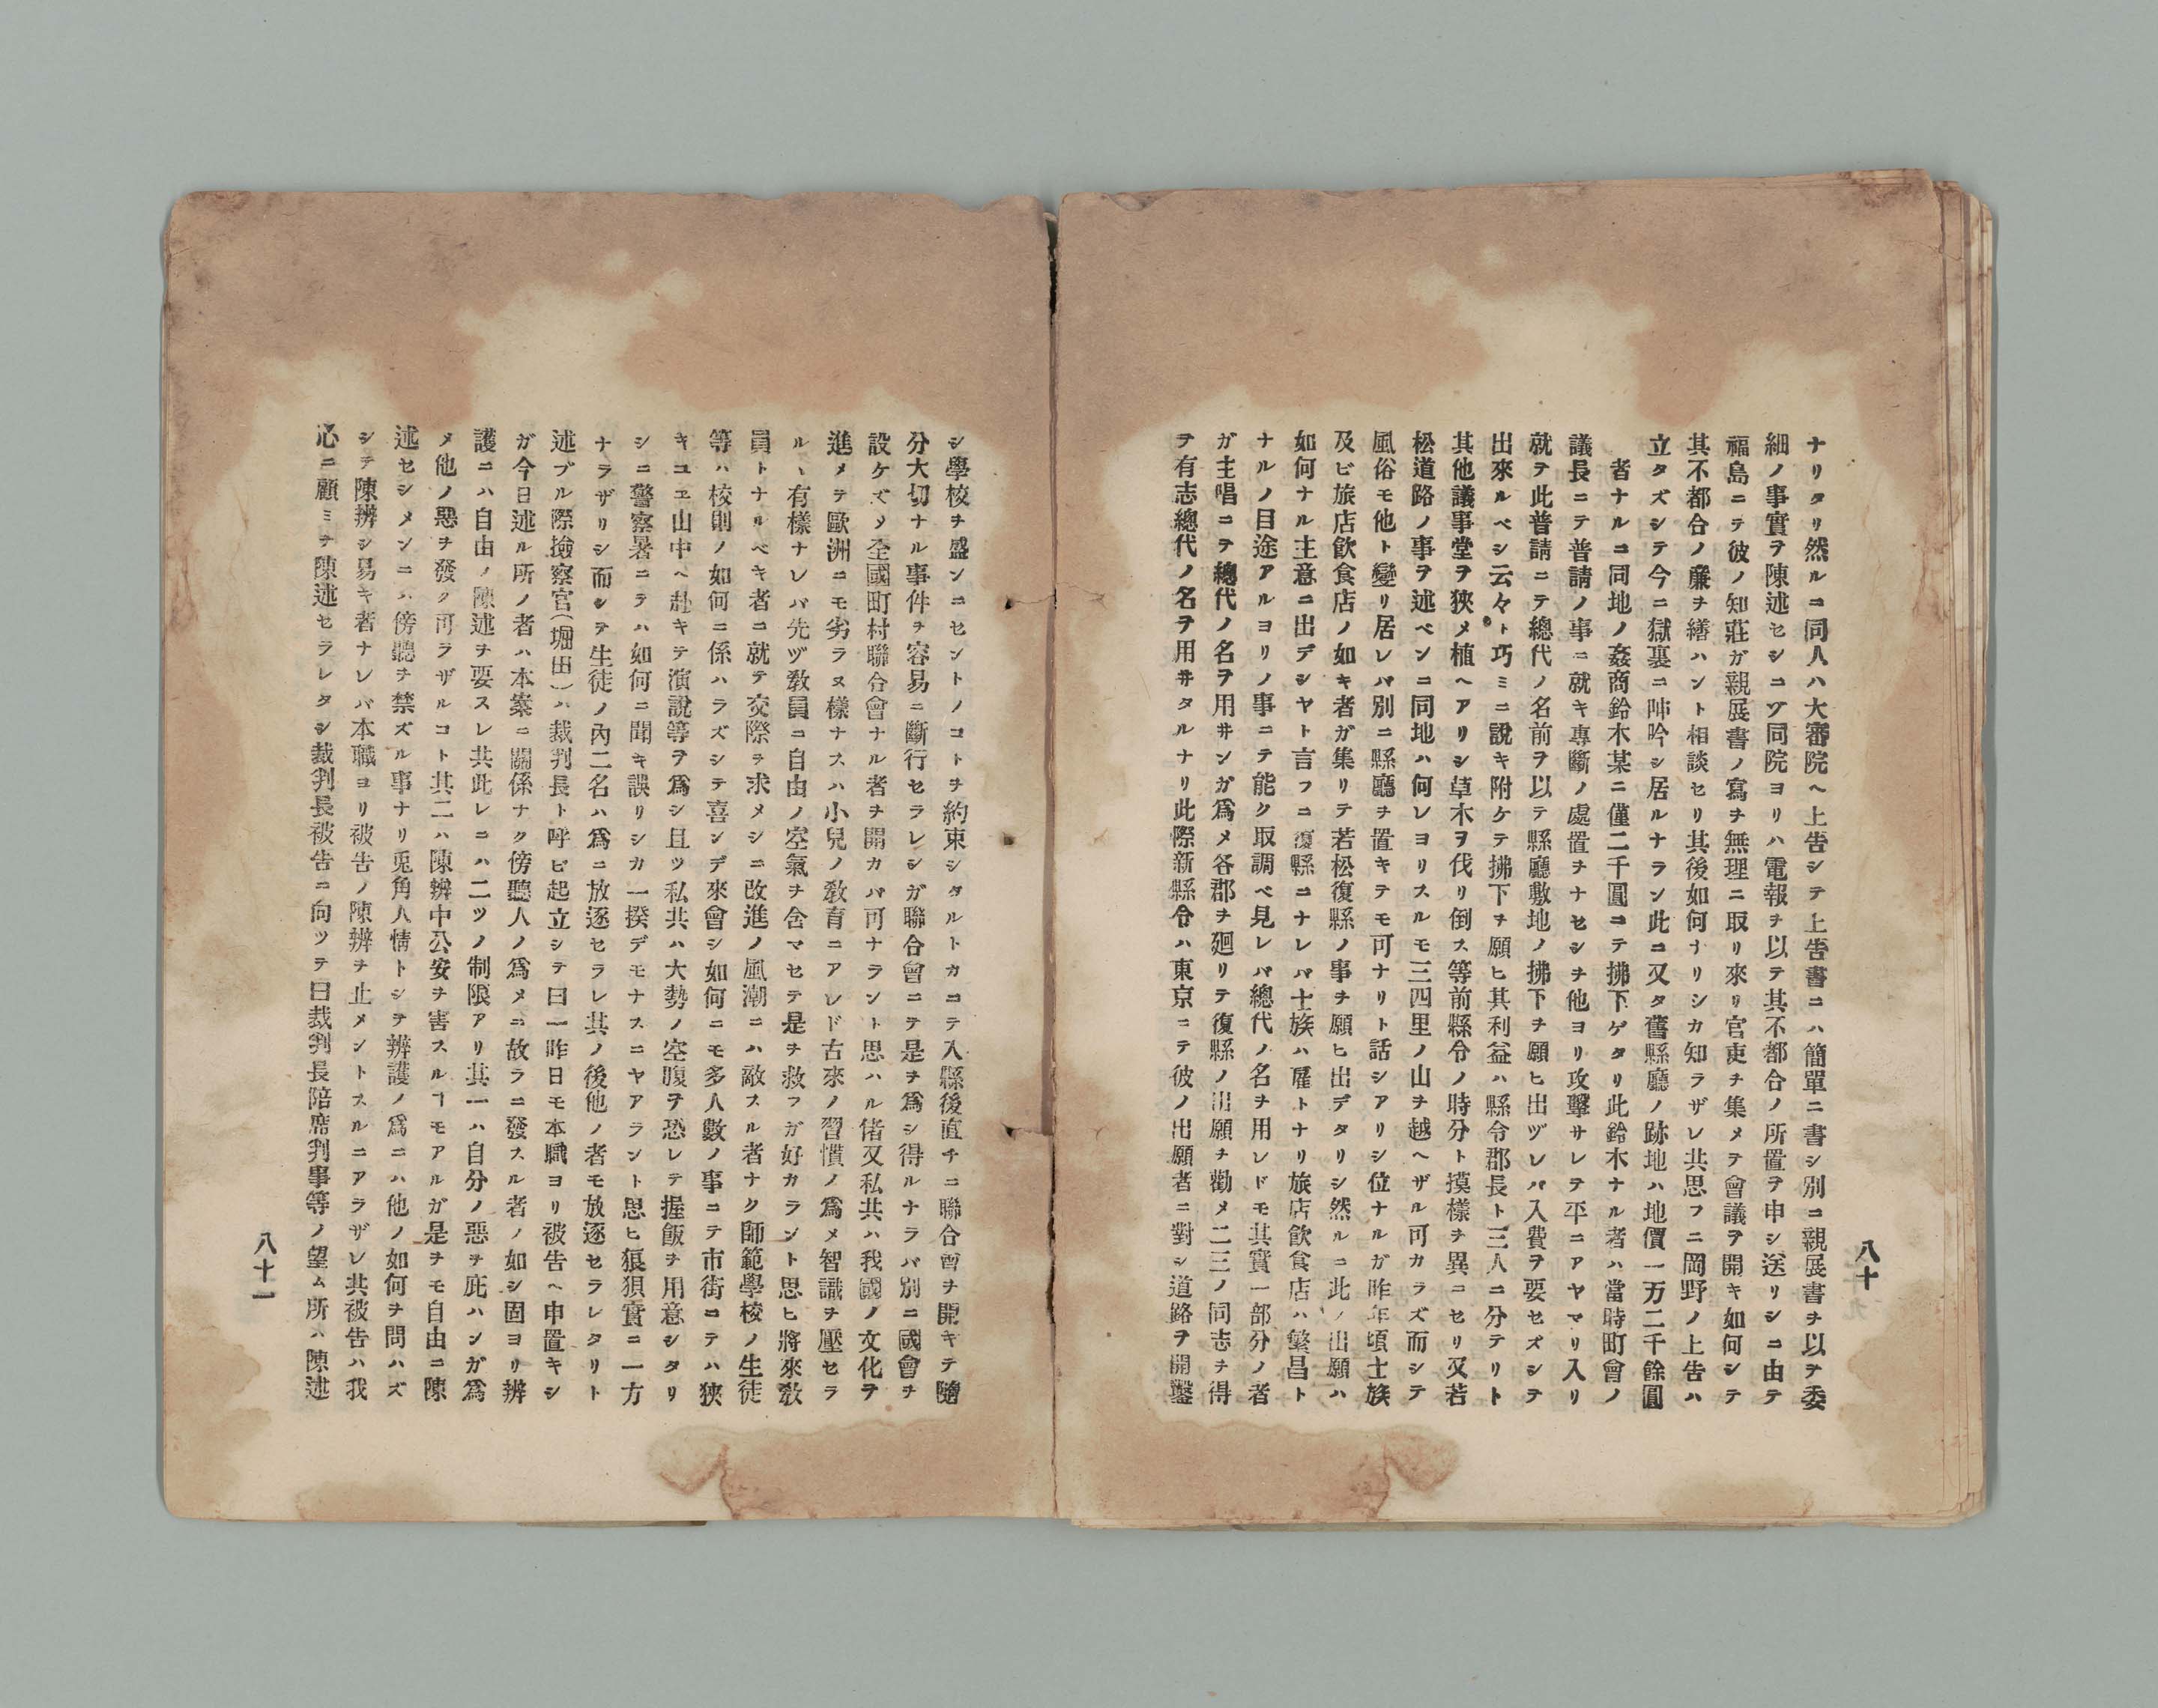 八十
ナリタリ然ルニ同人ハ大審院ヘ上告シテ上告書ニハ簡單ニ書シ別ニ親展書ヲ以テ委
細ノ事實ヲ陳述セシニゾ同院ヨリハ電報ヲ以テ其不都合ノ所置ヲ申シ送リシニ由テ
福島ニテ彼ノ知莊ガ親展書ノ寫ヲ無理ニ取リ來リ官吏ヲ集メテ會議ヲ開キ如何シテ
其不都合ノ廉ヲ繕ハント相談セリ其後如何ナリシカ知ラザレ共思フニ岡野ノ上告ハ
立タズシテ今ニ獄裏ニ呻吟シ居ルナラン此ニ又タ舊縣廳ノ跡地ハ地價一万二千餘圓
者ナルニ同地ノ姦商鈴木某ニ僅二千圓ニテ拂下ゲタリ此鈴木ナル者ハ當時町會ノ
議長ニテ普請ノ事ニ就キ專斷ノ處置ヲナセシヲ他ヨリ攻擊サレテ平ニアヤマリ入リ
就テ此普請ニテ總代ノ名前ヲ以テ縣廳敷地ノ拂下ヲ願ヒ出ヅレバ入費ヲ要セズシテ
出來ルベシ云々ト巧ミニ說キ附ケテ拂下ヲ願ヒ其利益ハ縣令郡長ト三人ニ分テリト
其他議事堂ヲ狹メ植ヘアリシ草木ヲ伐リ倒ス等前縣令ノ時分ト摸樣ヲ異ニセリ又若
松道路ノ事ヲ述ベンニ同地ハ何レヨリスルモ三四里ノ山ヲ越ヘザル可カラズ而シテ
風俗モ他ト變リ居レバ別ニ縣廳ヲ置キテモ可ナリト話シアリシ位ナルガ昨年頃士族
及ビ旅店飮食店ノ如キ者ガ集リテ若松復縣ノ事ヲ願ヒ出デタリシ然ルニ此ノ出願ハ
如何ナル主意ニ出デシヤト言フニ復縣ニナレバ士族ハ雇トナリ旅店飮食店ハ繁昌ト
ナルノ目途アルヨリノ事ニテ能ク取調ベ見レバ總代ノ名ヲ用レドモ其實一部分ノ者
ガ主唱ニテ總代ノ名ヲ用井ンガ爲メ各郡ヲ廻リテ復縣ノ出願ヲ勸メ二三ノ同志ヲ得
テ有志總代ノ名ヲ用井タルナリ此際新縣令ハ東京ニテ彼ノ出願者ニ對シ道路ヲ開鑿
シ學校ヲ盛ンニセントノコトヲ約束シタルトカニテ入縣後直チニ聯合會ヲ開キテ隨
分大切ナル事件ヲ容易ニ斷行セラレシガ聯合會ニテ是ヲ爲シ得ルナラバ別ニ國會ヲ
設ケズメ全國町村聯合會ナル者ヲ開カバ可ナラント思ハル偖又私共ハ我國ノ文化ヲ
進メテ歐洲ニモ劣ラヌ樣ナスハ小兒ノ敎育ニアレド古來ノ習慣ノ爲メ智識ヲ壓セラ
ルヽ有樣ナレバ先ヅ敎員ニ自由ノ空氣ヲ含マセテ是ヲ救フガ好カラント思ヒ將來敎
員トナルベキ者ニ就テ交際ヲ求メシニ改進ノ風潮ニハ敵スル者ナク師範學校ノ生徒
等ハ校則ノ如何ニ係ハラズシテ喜ンデ來會シ如何ニモ多人數ノ事ニテ市街ニテハ狹
キユヱ山中ヘ赴キテ演說等ヲ爲シ且ツ私共ハ大勢ノ空腹ヲ恐レテ握飯ヲ用意シタリ
シニ警察署ニテハ如何ニ聞キ誤リシカ一揆デモナスニヤアラント思ヒ狼狽實ニ一方
ナラザリシ而シテ生徒ノ內二名ハ爲ニ放逐セラレ其ノ後他ノ者モ放逐セラレタリト
述ブル際撿察官(堀田)ハ裁判長ト呼ビ起立シテ曰一昨日モ本職ヨリ被告ヘ申置キシ
ガ今日述ル所ノ者ハ本案ニ關係ナク傍聽人ノ爲メニ故ラニ發スル者ノ如シ固ヨリ辨
護ニハ自由ノ陳述ヲ要スレ共此レニハ二ツノ制限アリ其一ハ自分ノ惡ヲ庇ハンガ爲
メ他ノ惡ヲ發ク可ラザルコト其二ハ陳辨中公安ヲ害スルヿモアルガ是ヲモ自由ニ陳
述セシメンニハ傍聽ヲ禁ズル事ナリ兎角人情トシテ辨護ノ爲ニハ他ノ如何ヲ問ハズ
シテ陳辨シ易キ者ナレバ本職ヨリ被告ノ陳辨ヲ止メントスルニアラザレ共被告ハ我
心ニ顧ミテ陳述セラレタシ裁判長被告ニ向ツテ曰裁判長陪席判事等ノ望ム所ハ陳述
八十一